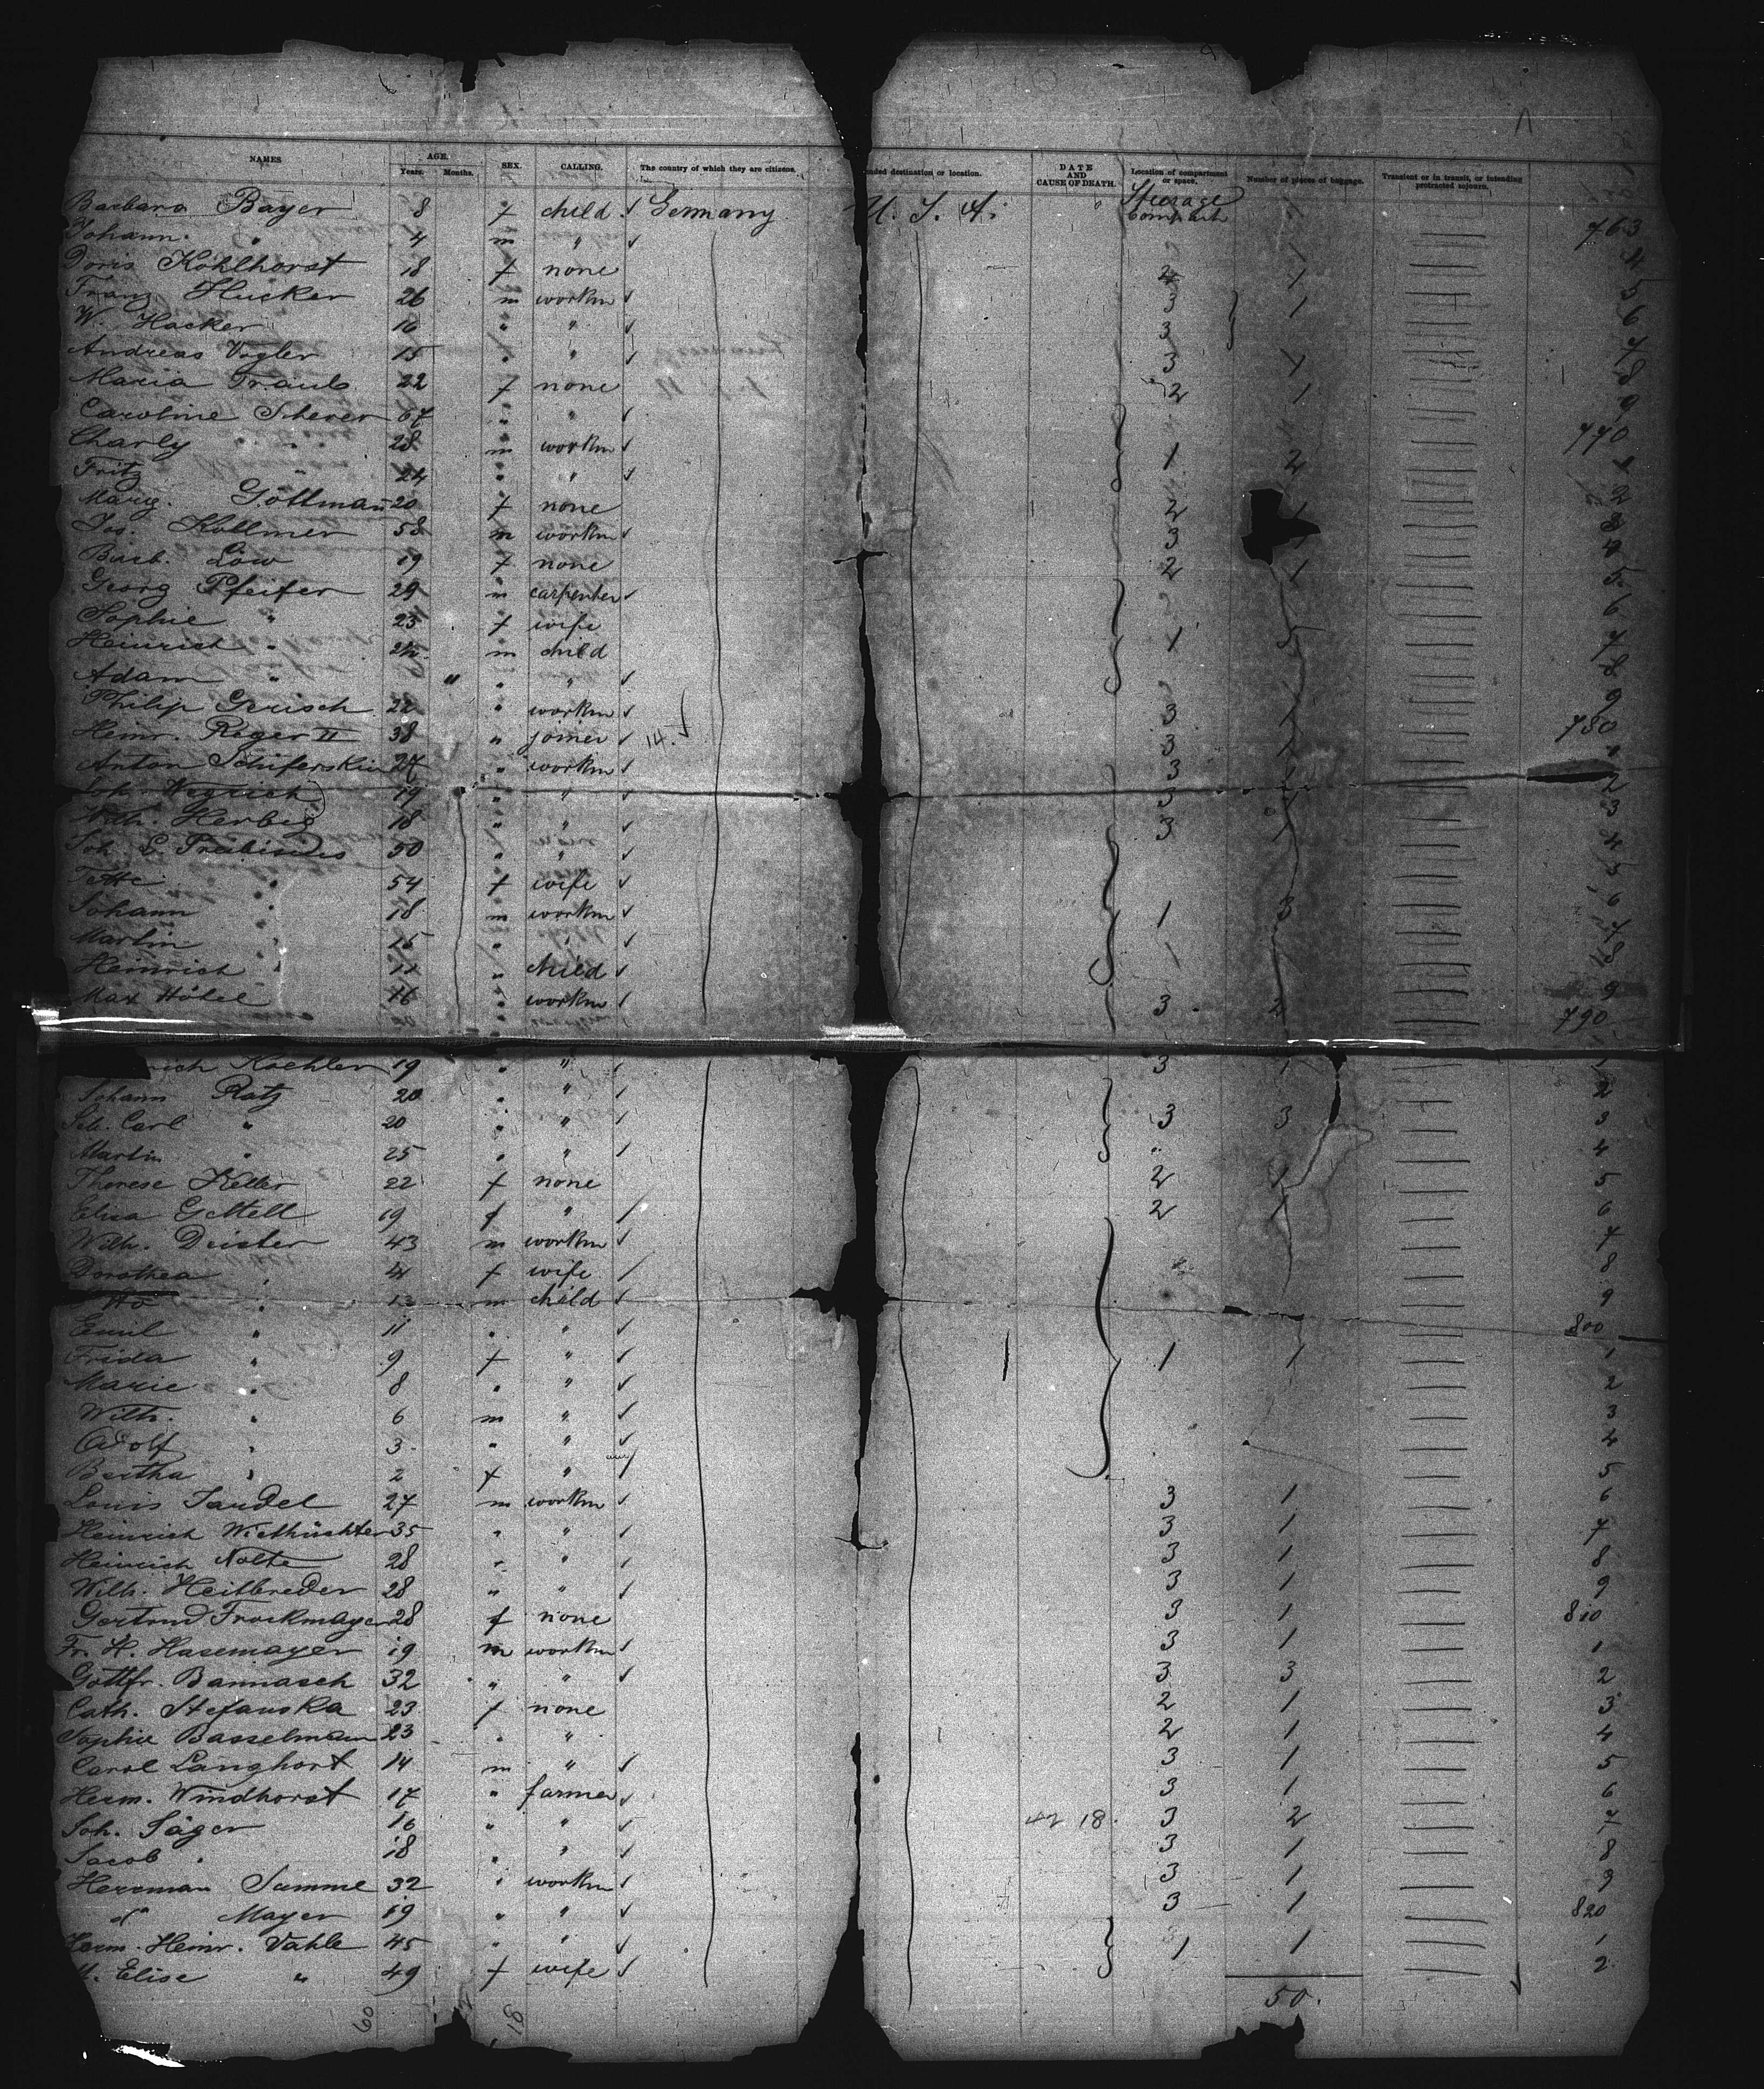 NAMES AGE. Years. Months. SEX. CALLING. The country of which they are citizens. nded destination or location. DATE AND CAUSE OF DEATH. Location of compartment or space. Number of pieces of baggage. Transient or in transit, or intending protracted sojourn.
Barbara Bayer 8 f child Germany U. S. A. Steerage 763
Johann " 4 m " 4
Doris Kohlhorst 18 f none 2 1 5
Franz Hucker 26 m workm 3 1 6
W. Hacker 16 " " 3 7
Andreas Vogler 15 " " 3 1 8
Maria Traub 22 f none 2 1 9
Caroline Scherer 67 " " 770
Charly " 28 m workm 1 2 1
Fritz " 24 " " 2
Marg. Gottman 20 f none 2 1 3
Jos. Kollmer 58 m workm 3 1 4
Barb. Löw 19 f none 2 1 5
Georg Pfeifer 29 m carpenter 6
Sophie " 23 f wife 1 5 7
Heinrich " m child 8
Adam " " " 9
Philip Grisch 22 " workm 3 1 780
Heinr. Rieger II 38 " joiner 14. 3 1 1
Anton 27 " workm 3 1 2
Joh. Wegrich 19 " " 3 3
Wilh. Herbig 18 " " 3 1 4
Joh. 50 " " 5
54 f wife 6
Johann " 18 m workm 1 3 7
Martin " 15 " " 8
Heinrich " 11 " child 9
Max Hötel 16 " workm 3 2 790
rich Koehler 19 " " 3 1 1
Johann Ratz 20 " " 2
Carl " 20 " " 3 3 3
Martin " 25 " " 4
Therese Keller 22 f none 2 1 5
Elisa Gettell 19 f " 2 1 6
Wilh. Deister 43 m workm 7
Dorothea " 41 f wife 8
Otto " 13 m child 9
Emil " 11 " " 800
Frida " 9 f " 1 1 1
Marie " 8 " " 2
Wilh. " 6 m " 3
Adolf " 3 " " 4
Bertha " 2 f " 5
Louis Jandel 27 m workm 3 1 6
Heinrich Wiethüchter 35 " " 3 1 7
Heinrich Nolte 28 " " 3 1 8
Wilh. Heitbreder 28 " " 3 1 9
Gertrud Frockmayer 28 f none 3 1 810
Fr. H. Hasemayer 19 m workm 3 1 1
Gottfr. Bannasch 32 " " 3 3 2
Cath. Stefanska 23 f none 2 1 3
Sophie Basselmann 23 " " 2 1 4
Carol Langhort 14 m " 3 1 5
Herm. Windhorst 17 " farmer 3 1 6
Joh. Jäger 16 " " 42 18. 3 2 7
Jacob " 18 " " 3 1 8
Herrman Summe 32 " workm 3 1 9
" Mayer 19 " " 3 1 820
Herm. Heinr. Vahle 45 " " 1 1 1
M. Elise " 49 f wife 2
50.